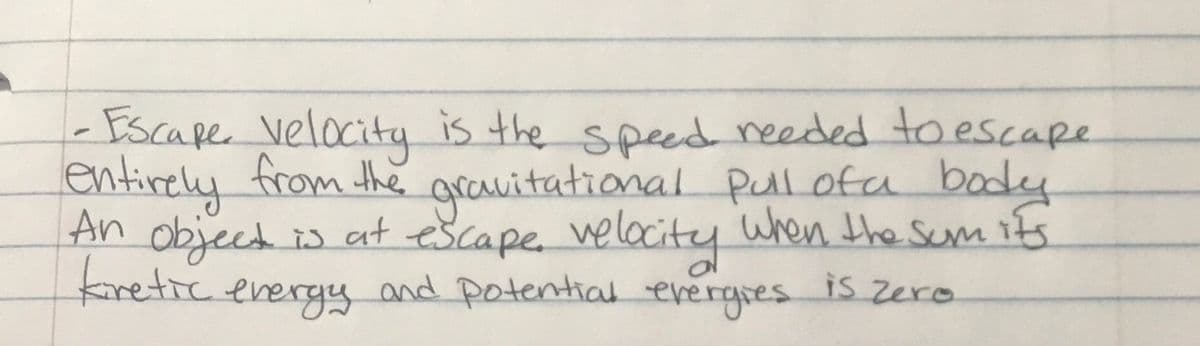 - Escape velocity is the speed needed to escape
entirely from the gravitational pull of a body
An object is at escape velocity when the sum its
kinetic energy and potential energies is zero